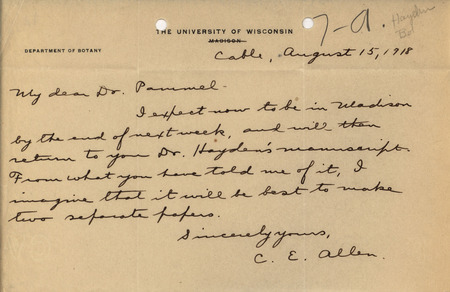 7-a. Hayden
Bot
THE UNIVERSITY OF WISCONSIN
MADISON
DEPARTMENT OF BOTANY
Cable, August 15, 1918
My dear Dr. Pammel-
I expect now to be in Madison
by the end of next week, and will then
return to you Dr. Hayden's manuscript.
From what you have told me of it, I
imagine that it will be best to make
two separate papers.
Sincerely yours,
C. E. Allen.